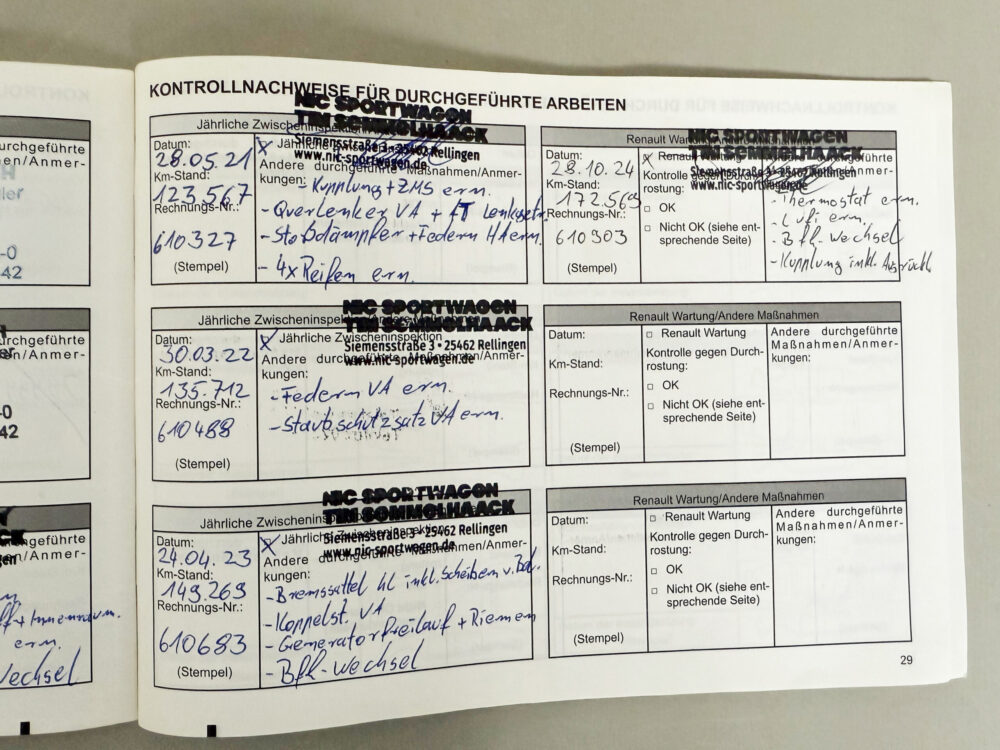 KONTROLLNACHWEISE FÜR DURCHGEFÜHRTE ARBEITEN
Jährliche Zwischeninspektion
NIC SPORTWAGEN
TIM SOMMOLHAACK
Siemensstraße 3 • 25462 Rellingen
www.nic-sportwagen.de
Datum:
28.05.21
Km-Stand:
123.567
Rechnungs-Nr.:
610327
(Stempel)
X Jährliche Zwischeninspektion
Andere
kungen:
- Kupplung + ZMS ern.
- Querlenker VA + AT Lenkgetr.
- Stoßdämpfer + Federn HA ern.
- 4x Reifen ern.
Jährliche Zwischeninspektion
NIC SPORTWAGEN
TIM SOMMOLHAACK
Siemensstraße 3 • 25462 Rellingen
www.nic-sportwagen.de
Datum:
30.03.22
Km-Stand:
135.712
Rechnungs-Nr.:
610488
(Stempel)
X Jährliche Zwischeninspektion
Andere durchgeführte Maßnahmen/Anmer-
kungen:
- Federn VA ern.
- Staubschutzsatz VA ern.
Jährliche Zwischeninspektion
NIC SPORTWAGEN
TIM SOMMOLHAACK
Siemensstraße 3 • 25462 Rellingen
www.nic-sportwagen.de
Datum:
24.04.23
Km-Stand:
149.269
Rechnungs-Nr.:
610683
(Stempel)
X Jährliche Zwischeninspektion
Andere durchgeführte Maßnahmen/Anmer-
kungen:
- Bremssattel hl inkl. Scheiben u. Bel.
- Koppelst. VA
- Generatorfreilauf + Riemen
- Bfl-Wechsel
Renault Wartung/Andere Maßnahmen
NIC SPORTWAGEN
TIM SOMMOLHAACK
Siemensstraße 3 • 25462 Rellingen
www.nic-sportwagen.de
Datum:
28.10.24
Km-Stand:
172.569
Rechnungs-Nr.:
610903
(Stempel)
X Renault Wartung
Kontrolle gegen Durch-
rostung:
OK
Nicht OK (siehe ent-
sprechende Seite)
- Thermostat ern.
- Lufi ern.
- Bfl-Wechsel
- Kupplung inkl. Ausrückl.
Renault Wartung/Andere Maßnahmen
Datum:
Km-Stand:
Rechnungs-Nr.:
(Stempel)
Renault Wartung
Kontrolle gegen Durch-
rostung:
OK
Nicht OK (siehe ent-
sprechende Seite)
Andere durchgeführte
Maßnahmen/Anmer-
kungen:
Renault Wartung/Andere Maßnahmen
Datum:
Km-Stand:
Rechnungs-Nr.:
(Stempel)
Renault Wartung
Kontrolle gegen Durch-
rostung:
OK
Nicht OK (siehe ent-
sprechende Seite)
Andere durchgeführte
Maßnahmen/Anmer-
kungen:
29